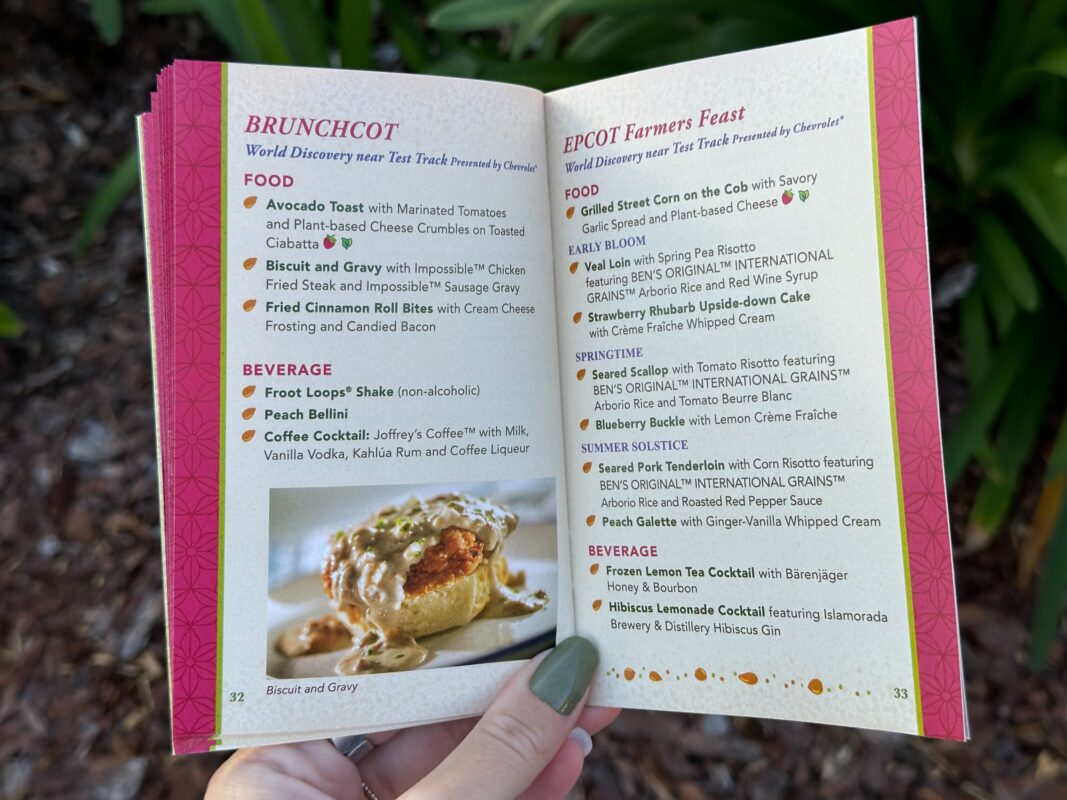 BRUNCHCOT
World Discovery near Test Track Presented by Chevrolet®
FOOD
Avocado Toast with Marinated Tomatoes
and Plant-based Cheese Crumbles on Toasted
Ciabatta
Biscuit and Gravy with Impossible™ Chicken
Fried Steak and Impossible™ Sausage Gravy
Fried Cinnamon Roll Bites with Cream Cheese
Frosting and Candied Bacon
BEVERAGE
Froot Loops® Shake (non-alcoholic)
Peach Bellini
Coffee Cocktail: Joffrey's Coffee™ with Milk,
Vanilla Vodka, Kahlúa Rum and Coffee Liqueur
Biscuit and Gravy
32
EPCOT Farmers Feast
World Discovery near Test Track Presented by Chevrolet®
FOOD
Grilled Street Corn on the Cob with Savory
Garlic Spread and Plant-based Cheese
EARLY BLOOM
Veal Loin with Spring Pea Risotto
featuring BEN'S ORIGINAL™ INTERNATIONAL
GRAINS™ Arborio Rice and Red Wine Syrup
Strawberry Rhubarb Upside-down Cake
with Crème Fraîche Whipped Cream
SPRINGTIME
Seared Scallop with Tomato Risotto featuring
BEN'S ORIGINAL™ INTERNATIONAL GRAINS™
Arborio Rice and Tomato Beurre Blanc
Blueberry Buckle with Lemon Crème Fraîche
SUMMER SOLSTICE
Seared Pork Tenderloin with Corn Risotto featuring
BEN'S ORIGINAL™ INTERNATIONAL GRAINS™
Arborio Rice and Roasted Red Pepper Sauce
Peach Galette with Ginger-Vanilla Whipped Cream
BEVERAGE
Frozen Lemon Tea Cocktail with Bärenjäger
Honey & Bourbon
Hibiscus Lemonade Cocktail featuring Islamorada
Brewery & Distillery Hibiscus Gin
33